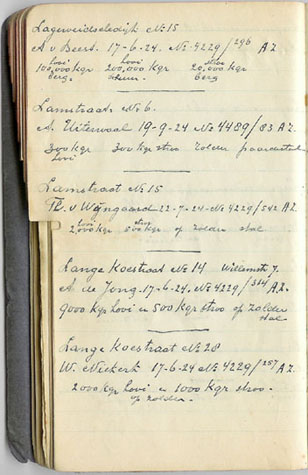 Lageweidsedijk № 15
A v Beest. 17-6-24. № 4229/296 A Z.
hooi hooi stroo
100,000 kgr 200,000 kgr 20,000 kgr
berg schuur. berg
Lamstraat № 6.
A. Uitenwaal 19-9-24 № 4489/83 A Z.
300 kgr 300 kgr stroo zolder paardestal
hooi
Lamstraat № 15
Th. v Wijngaard 22-7-24 № 4229/542 A Z.
hooi stroo
2,000 kgr 500 kgr op zolder stal
Lange Koestraat № 14 Willemst 7.
A. de Jong. 17-6-24. № 4229/314 A Z.
9000 kgr hooi en 500 kgr stroo op zolder
stal
Lange Koestraat № 28
W. Niekerk 17-6-24 № 4229/257 A Z.
2000 kgr hooi en 1000 kgr stroo
op zolder.